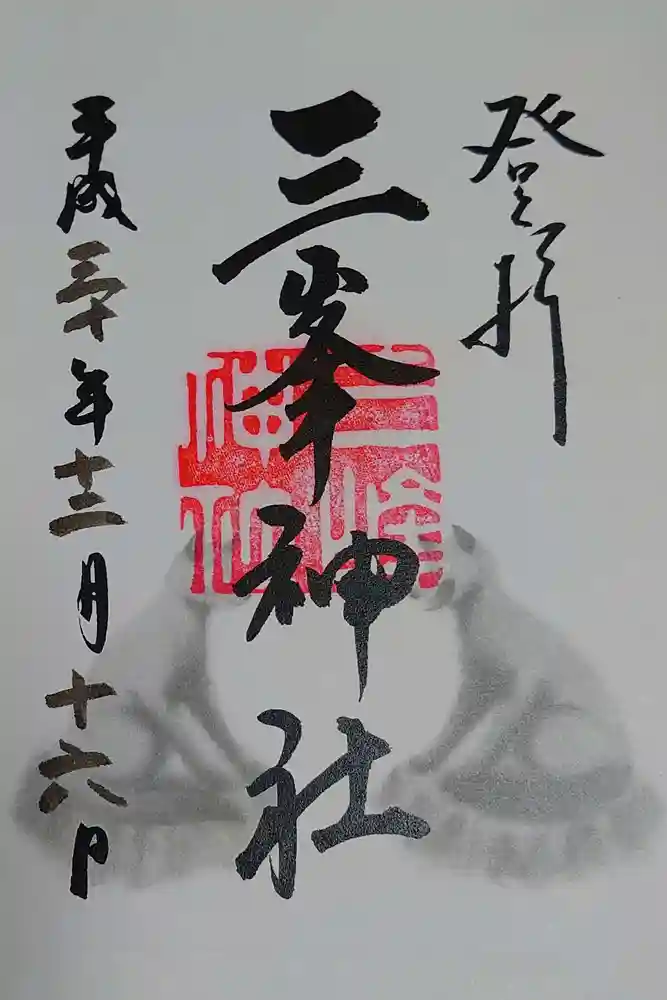 登拝
三峯神社
三峰神社
平成三十年十二月十六日